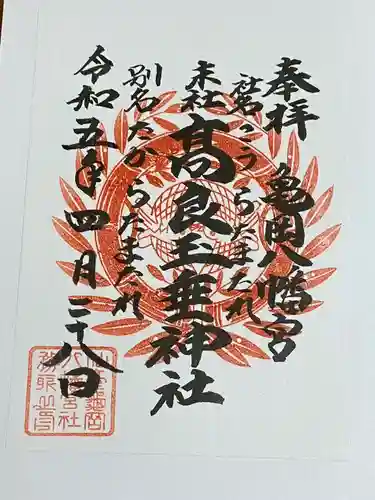 奉拝
亀岡八幡宮
社名こうらたまたれ
末社
高良玉垂神社
別名たからたまたれ
令和五年四月二十八日